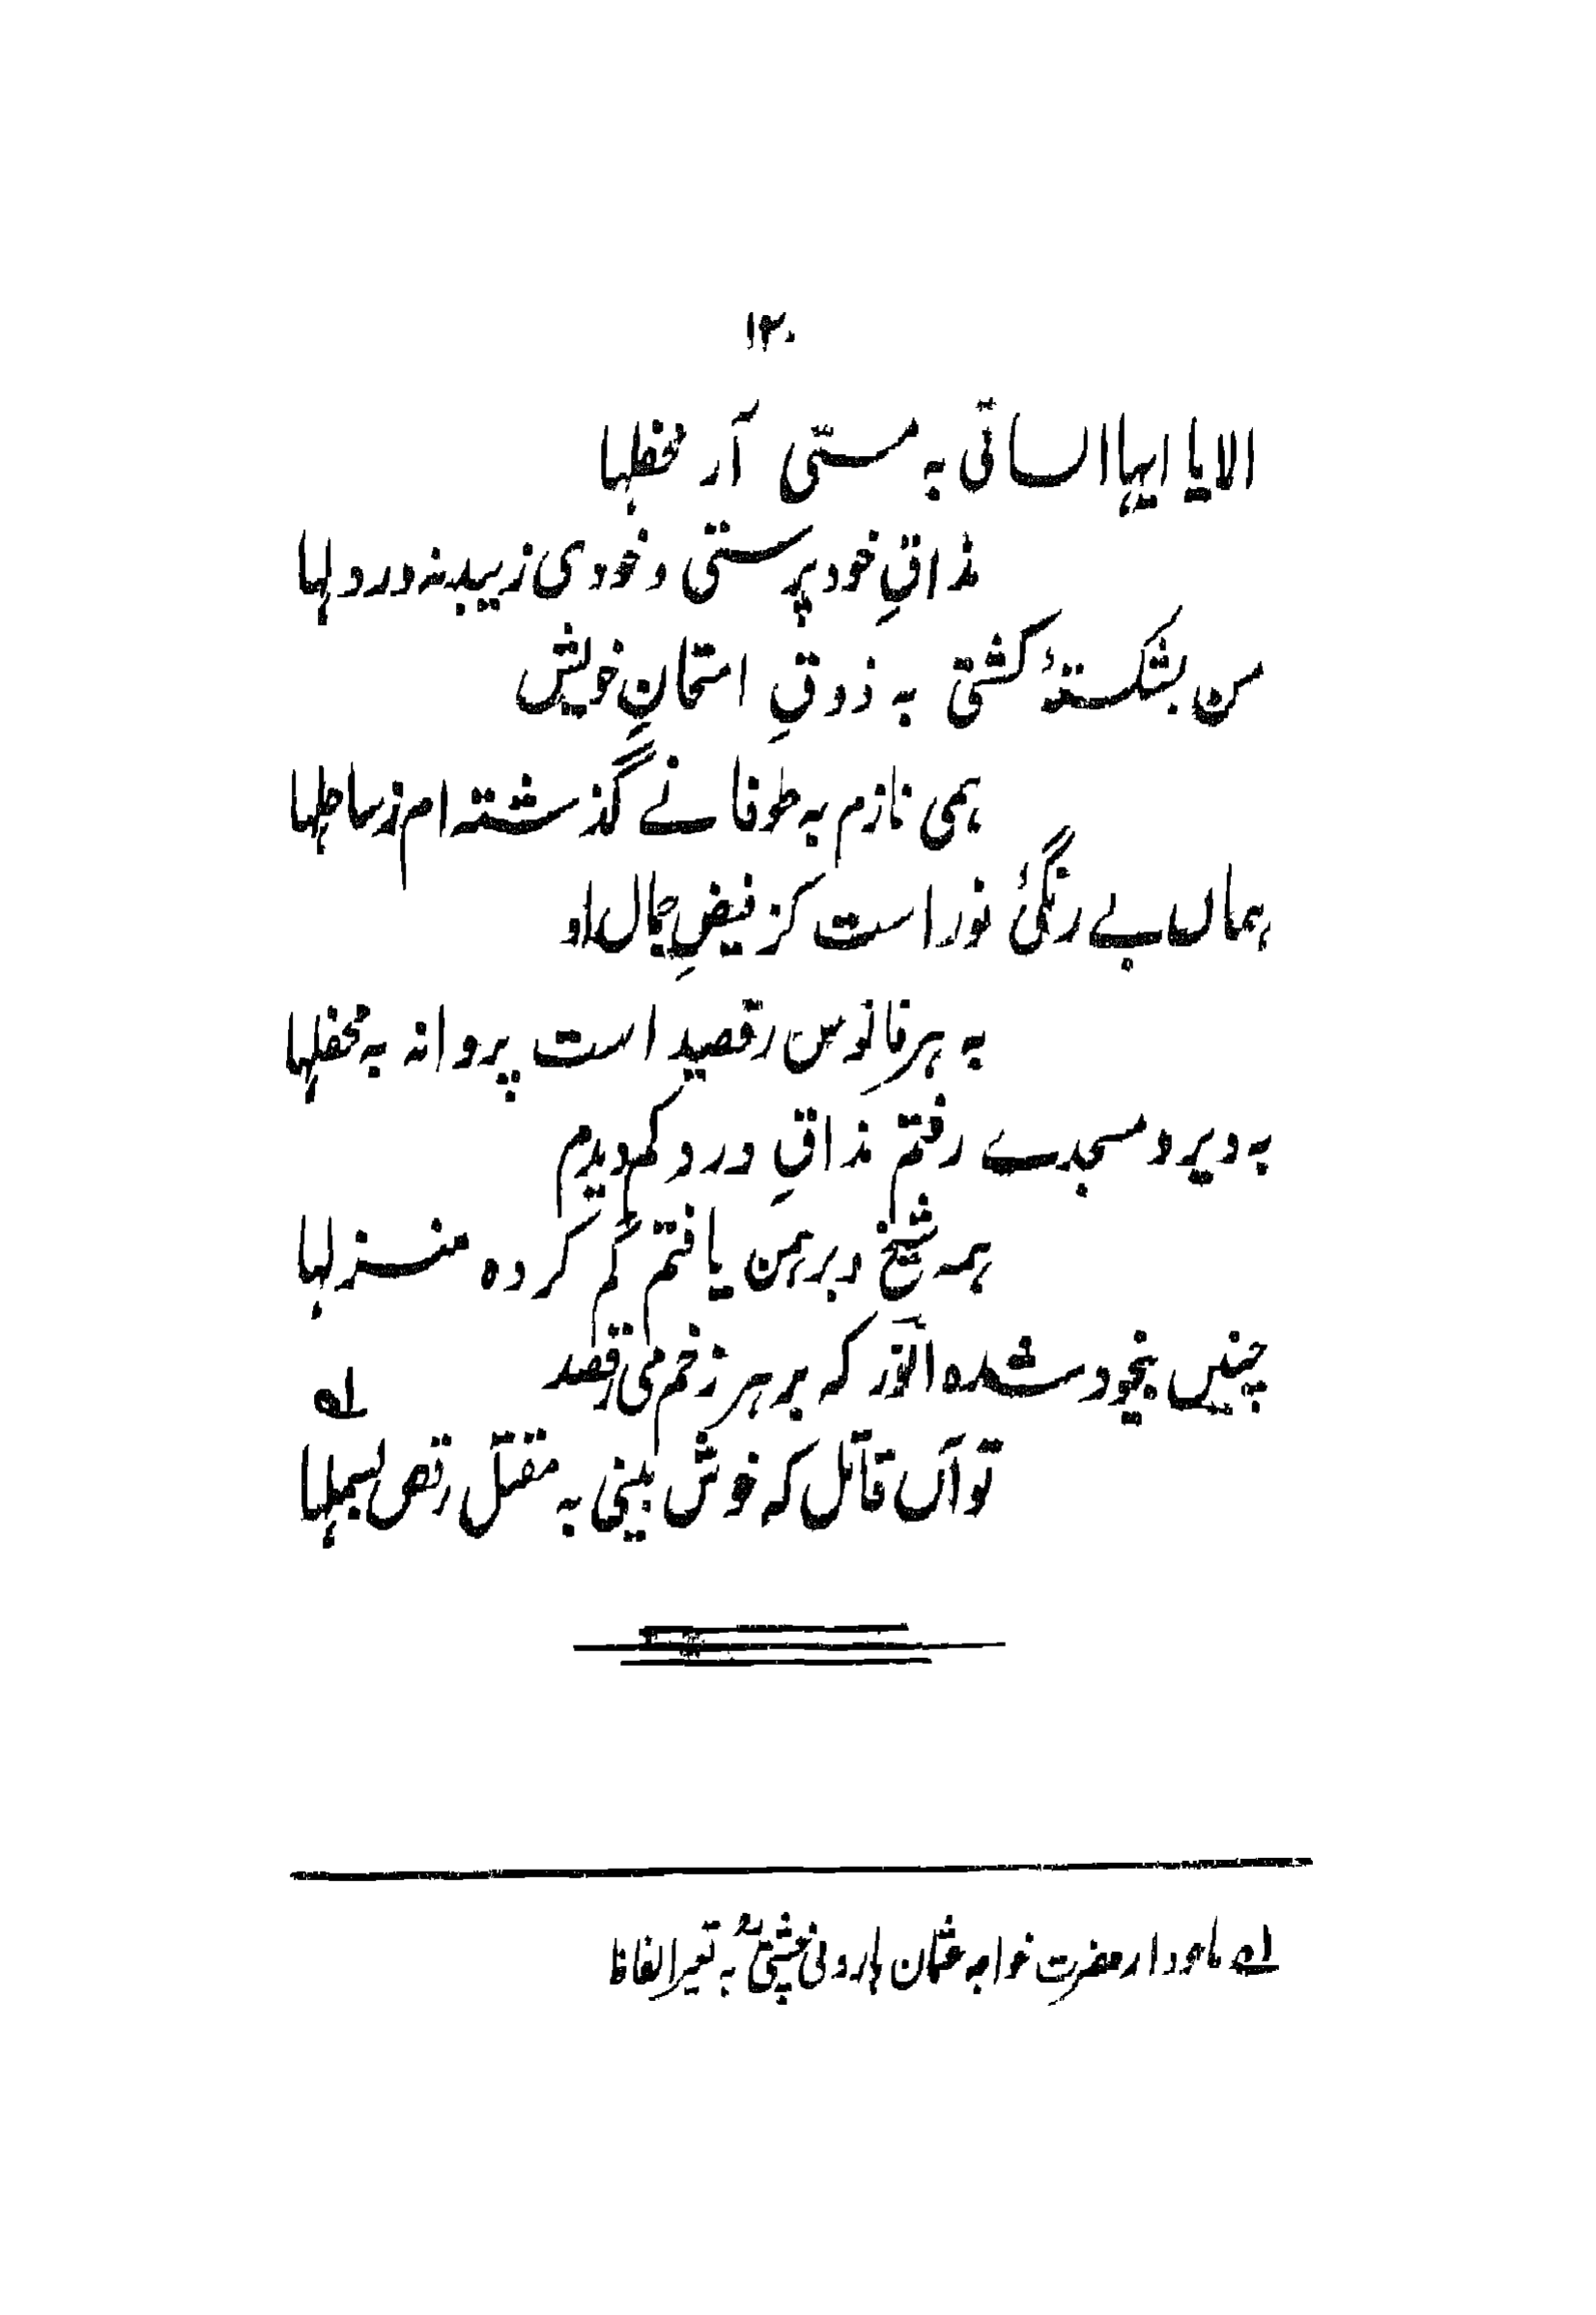 ۱۲۰
الا یا ایہا الساقی بہ مستی آر محفلہا
مذاقِ خود پرستی و خودی زیبد نہ در دلہا
من بشکستۂ کشتی بہ ذوقِ امتحانِ خویش
ہمی نازم بہ طوفانے گذشتہ ام ز ساحلہا
ہماں بے رنگیٔ نور است کز فیضِ جمال او
بہ ہر فانوس رقصید است پروانہ بہ محفلہا
بہ دیر و مسجدے رفتم مذاقِ درد کم دیدم
ہمہ شیخ و برہمن یافتم گم کردہ منزلہا
چنیں بیخود شدہ انور کہ بر ہر زخم می رقصد ؎۱
تو آں قاتل کہ خوش بینی بہ مقتل رقص بسملہا
؎۱ ماخوذ از حضرت خواجہ عثمان ہارونی چشتیؒ بہ تغیر الفاظ